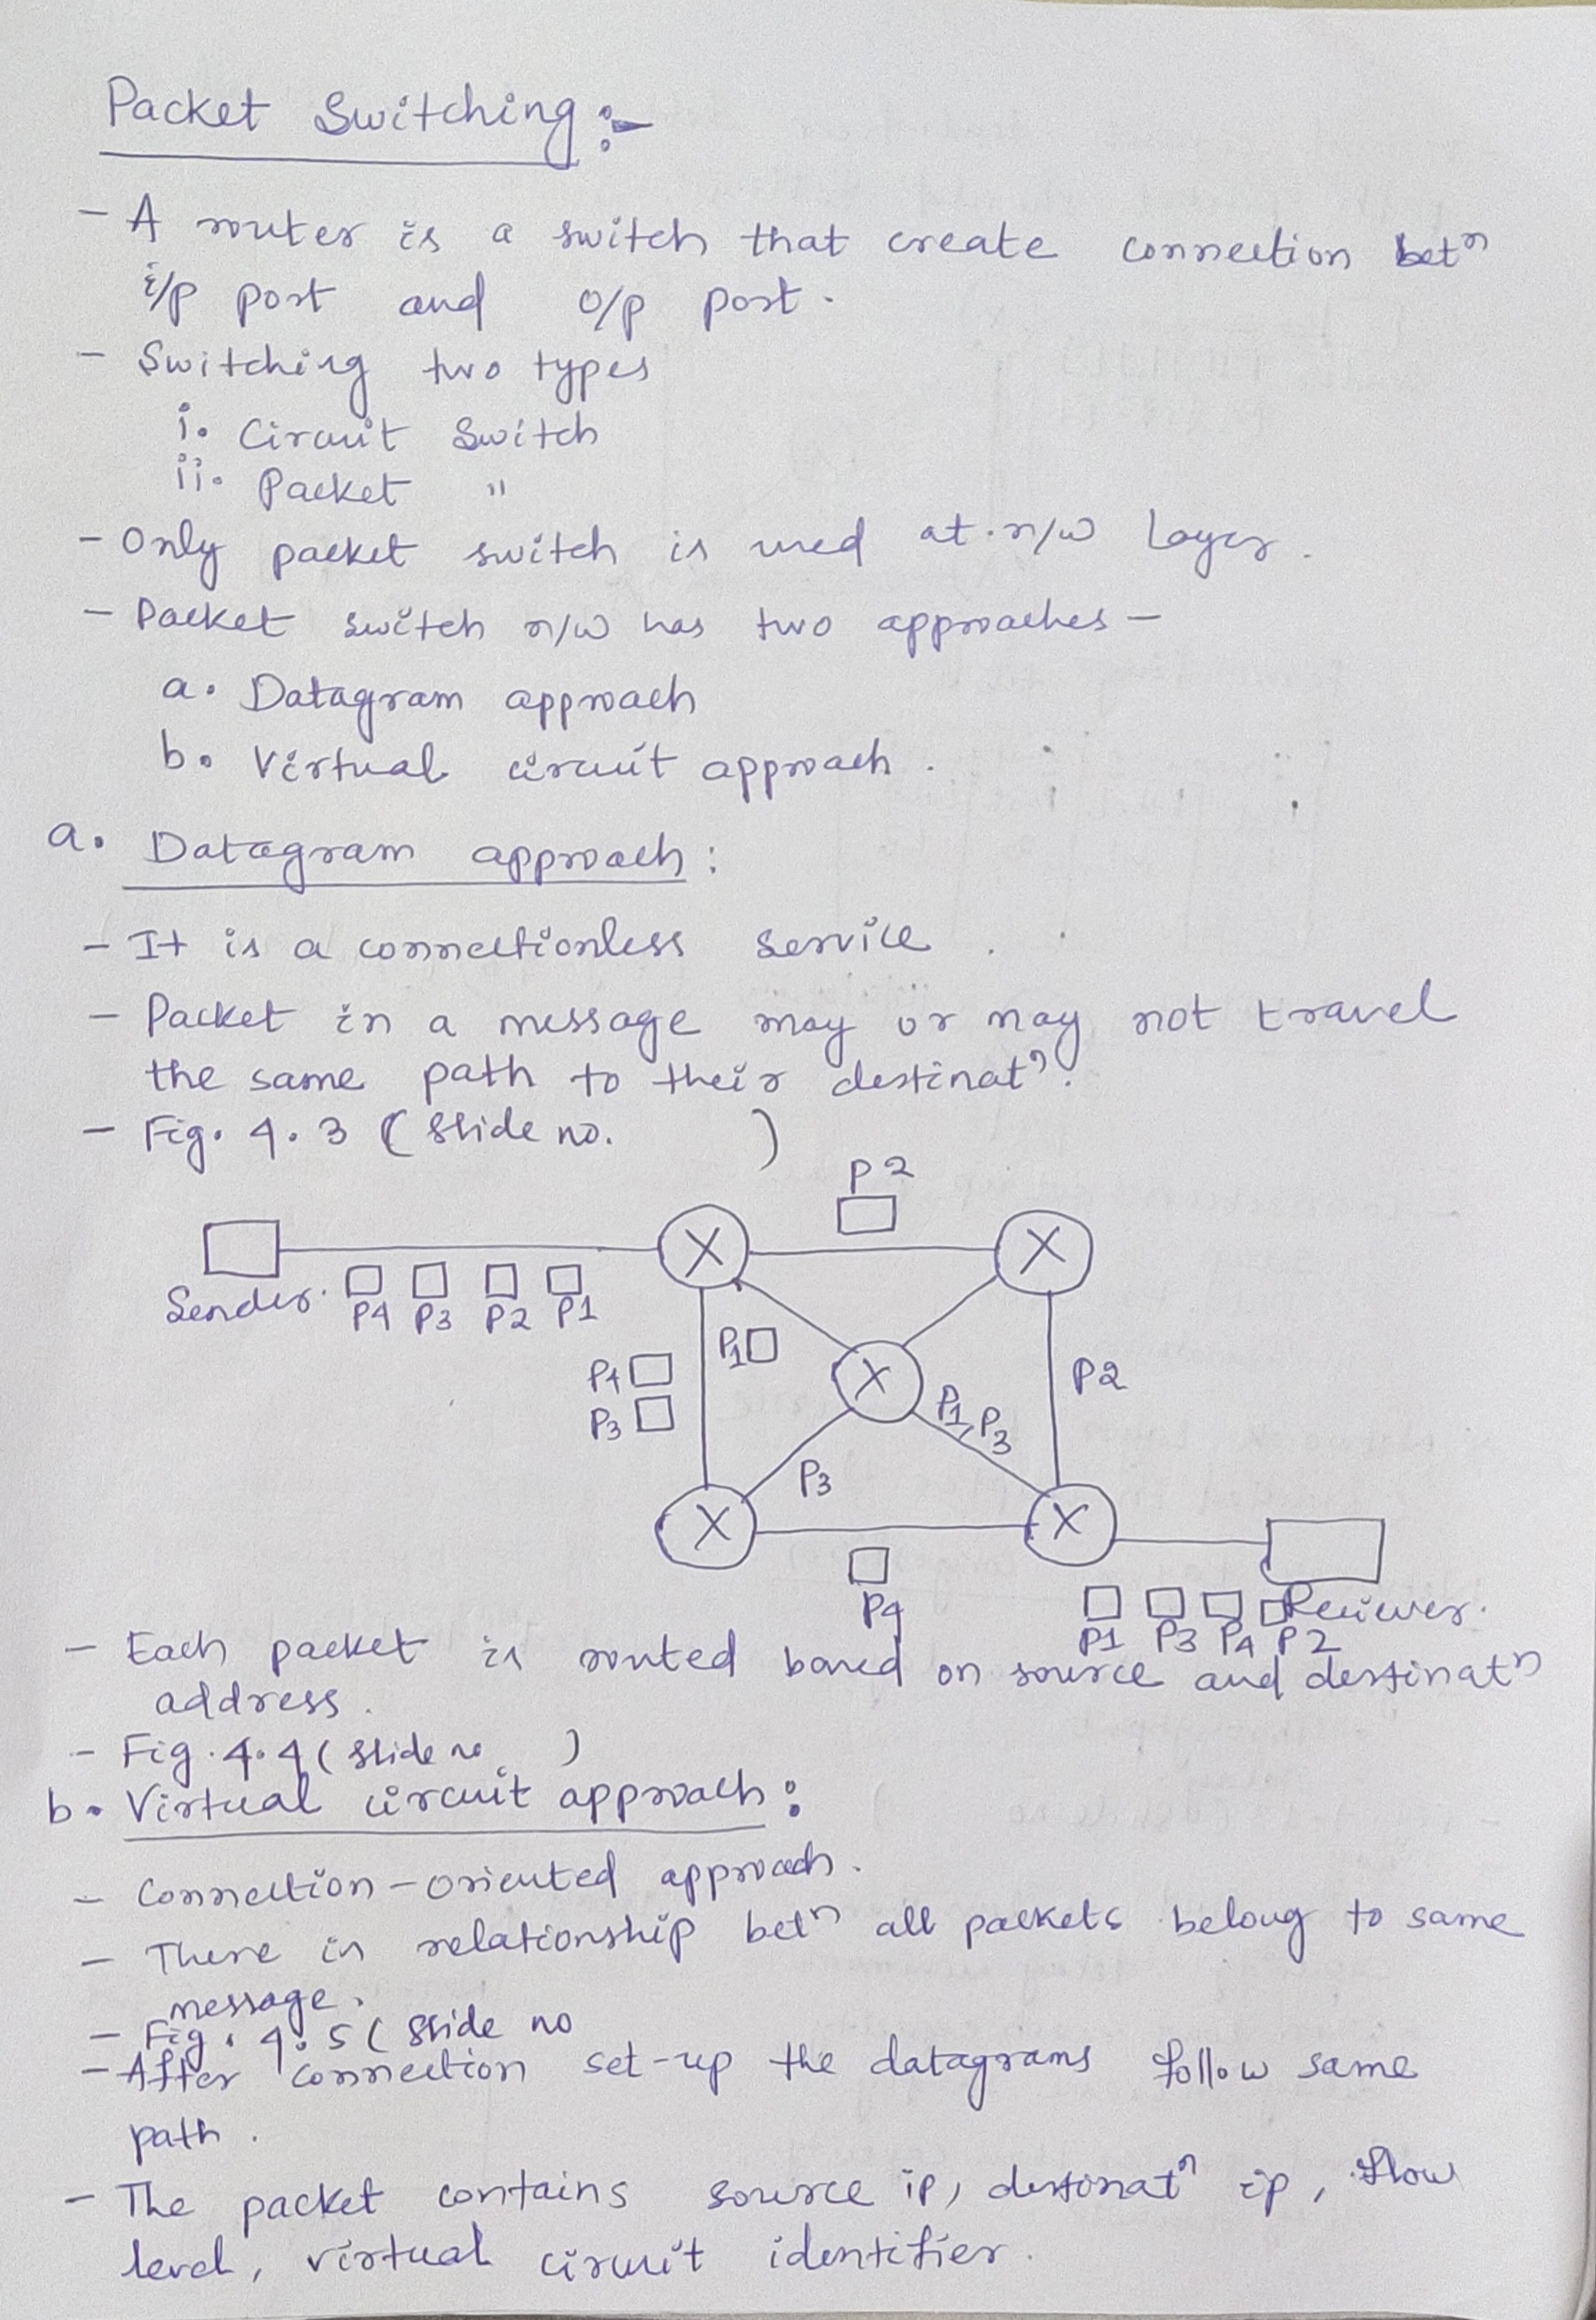 Packet Switching :-
- A router is a switch that create connection betⁿ
i/p port and o/p port.
- Switching two types
i. Circuit Switch
ii. Packet "
- Only packet switch is used at n/w Layer.
- Packet switch n/w has two approaches -
a. Datagram approach
b. Virtual circuit approach.
a. Datagram approach :
- It is a connectionless service.
- Packet in a message may or may not travel
the same path to their destinatⁿ.
- Fig. 4.3 ( Slide no. )
P2
Sender. P4 P3 P2 P1
P1
P4
P3
P2
P1, P3
P3
P4
Reciever.
P1 P3 P4 P2
- Each packet is routed based on source and destinatⁿ
address.
- Fig. 4.4 ( Slide no. )
b. Virtual circuit approach :
- Connection-oriented approach.
- There is relationship betⁿ all packets belong to same
message.
- Fig. 4.5 ( Slide no
- After connection set-up the datagrams follow same
path.
- The packet contains source ip, destinatⁿ ip, flow
level, virtual circuit identifier.